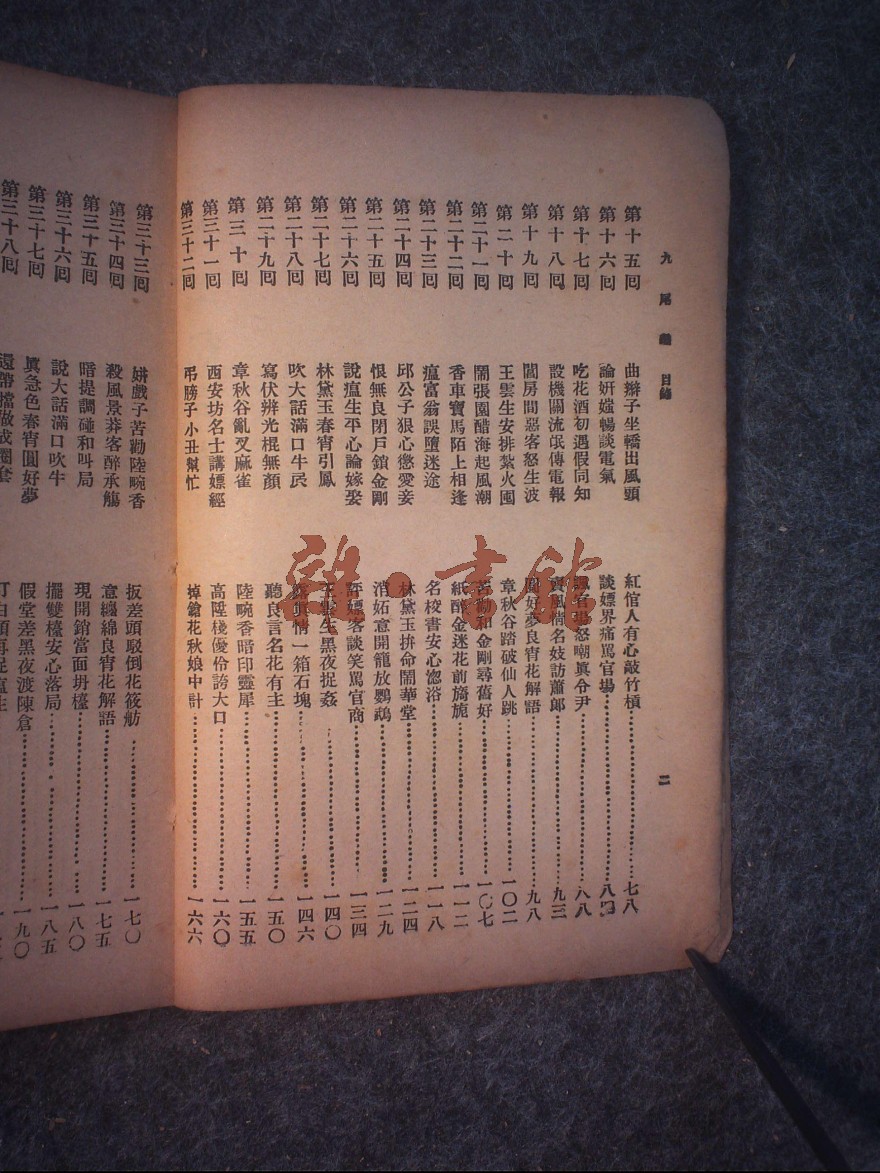 九尾龜 目錄
二
第十五回 曲辮子坐轎出風頭 紅倌人有心敲竹槓 七八
第十六回 論姸媸暢談電氣 談嫖界痛罵官場 八四
第十七回 吃花酒初遇假同知 官場怒嘲眞令尹 八八
第十八回 設機關流氓傳電報 賣風情名妓訪蕭郞 九三
第十九回 閙房間惡客怒生波 圓好夢良宵花解語 九八
第二十回 王雲生安排紮火囤 章秋谷踏破仙人跳 一〇二
第二十一回 鬧張園醋海起風潮 苦勸和金剛尋舊好 一〇七
第二十二回 香車寶馬陌上相逢 紙醉金迷花前旖旎 一一二
第二十三回 瘟富翁誤墮迷途 名校書安心惚浴 一一八
第二十四回 邱公子狠心懲愛妾 林黛玉拚命鬧華堂 一二四
第二十五回 恨無良閉戶鎖金剛 消妬意開籠放鸚鵡 一二九
第二十六回 說瘟生平心論嫁娶 評嫖客談笑罵官商 一三四
第二十七回 林黛玉春宵引鳳 王雲生黑夜捉姦 一四〇
第二十八回 吹大話滿口牛皮 眞情一箱石塊 一四六
第二十九回 寫伏辨光棍無顏 聽良言名花有主 一五〇
第三十回 章秋谷亂叉麻雀 陸畹香暗印靈犀 一五五
第三十一回 西安坊名士講嫖經 高陞棧優伶誇大口 一六〇
第三十二回 弔膀子小丑幫忙 掉鎗花秋娘中計 一六六
第三十三回 姘戲子苦勸陸畹香 扳差頭駁倒花筱舫 一七〇
第三十四回 殺風景莽客醉承觴 意纏綿良宵花解語 一七五
第三十五回 暗提調碰和叫局 現開銷當面坍檯 一八〇
第三十六回 說大話滿口吹牛 擺雙檯安心落局 一八五
第三十七回 眞急色春宵圓好夢 假堂差黑夜渡陳倉 一九〇
第三十八回 還帶擋做成圈套
雜·書館